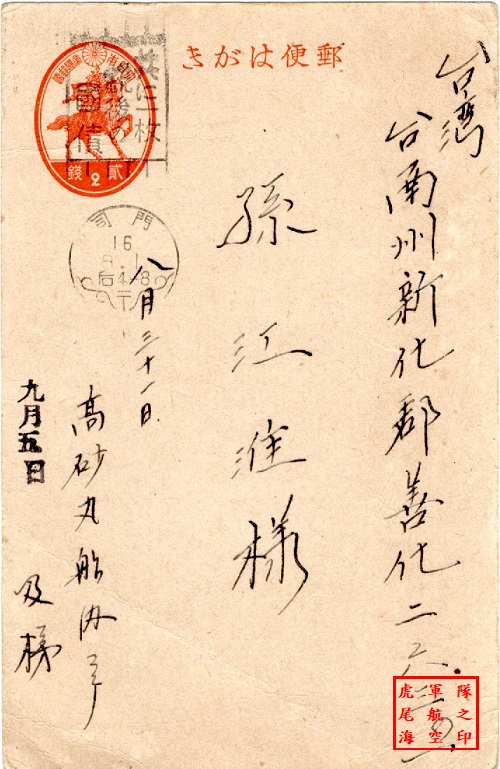 郵便はがき
大日本帝國郵便
貳錢
2
國債
門司
16
后4-8
台湾
台南州新化郡善化二六三
孫江淮様
八月三十一日
高砂丸船内ヨリ
九月五日
隊之印
軍航空
虎尾海